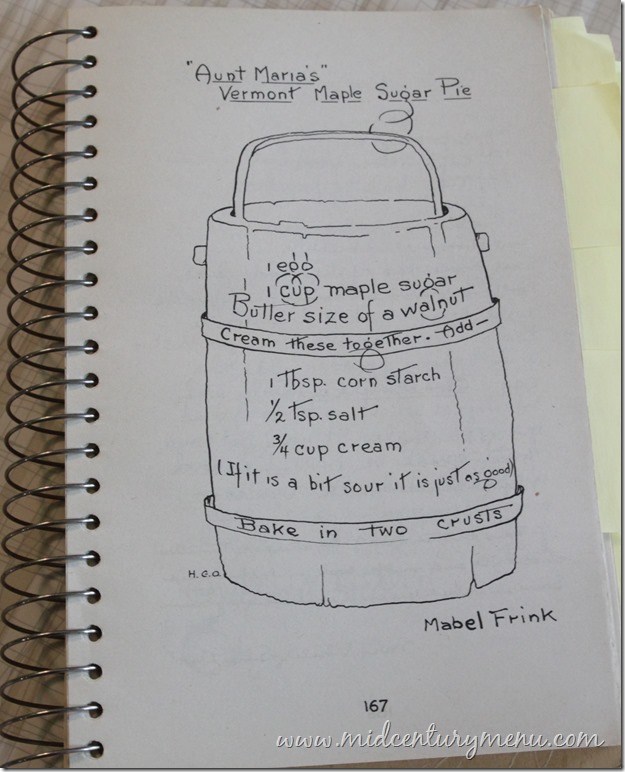 "Aunt Maria's"
Vermont Maple Sugar Pie
1 egg
1 cup maple sugar
Butter size of a walnut
Cream these together. Add—
1 Tbsp. corn starch
1/2 tsp. salt
3/4 cup cream
(If it is a bit sour it is just as good)
Bake in two crusts
H.C.O.
Mabel Frink
167
www.midcenturymenu.com